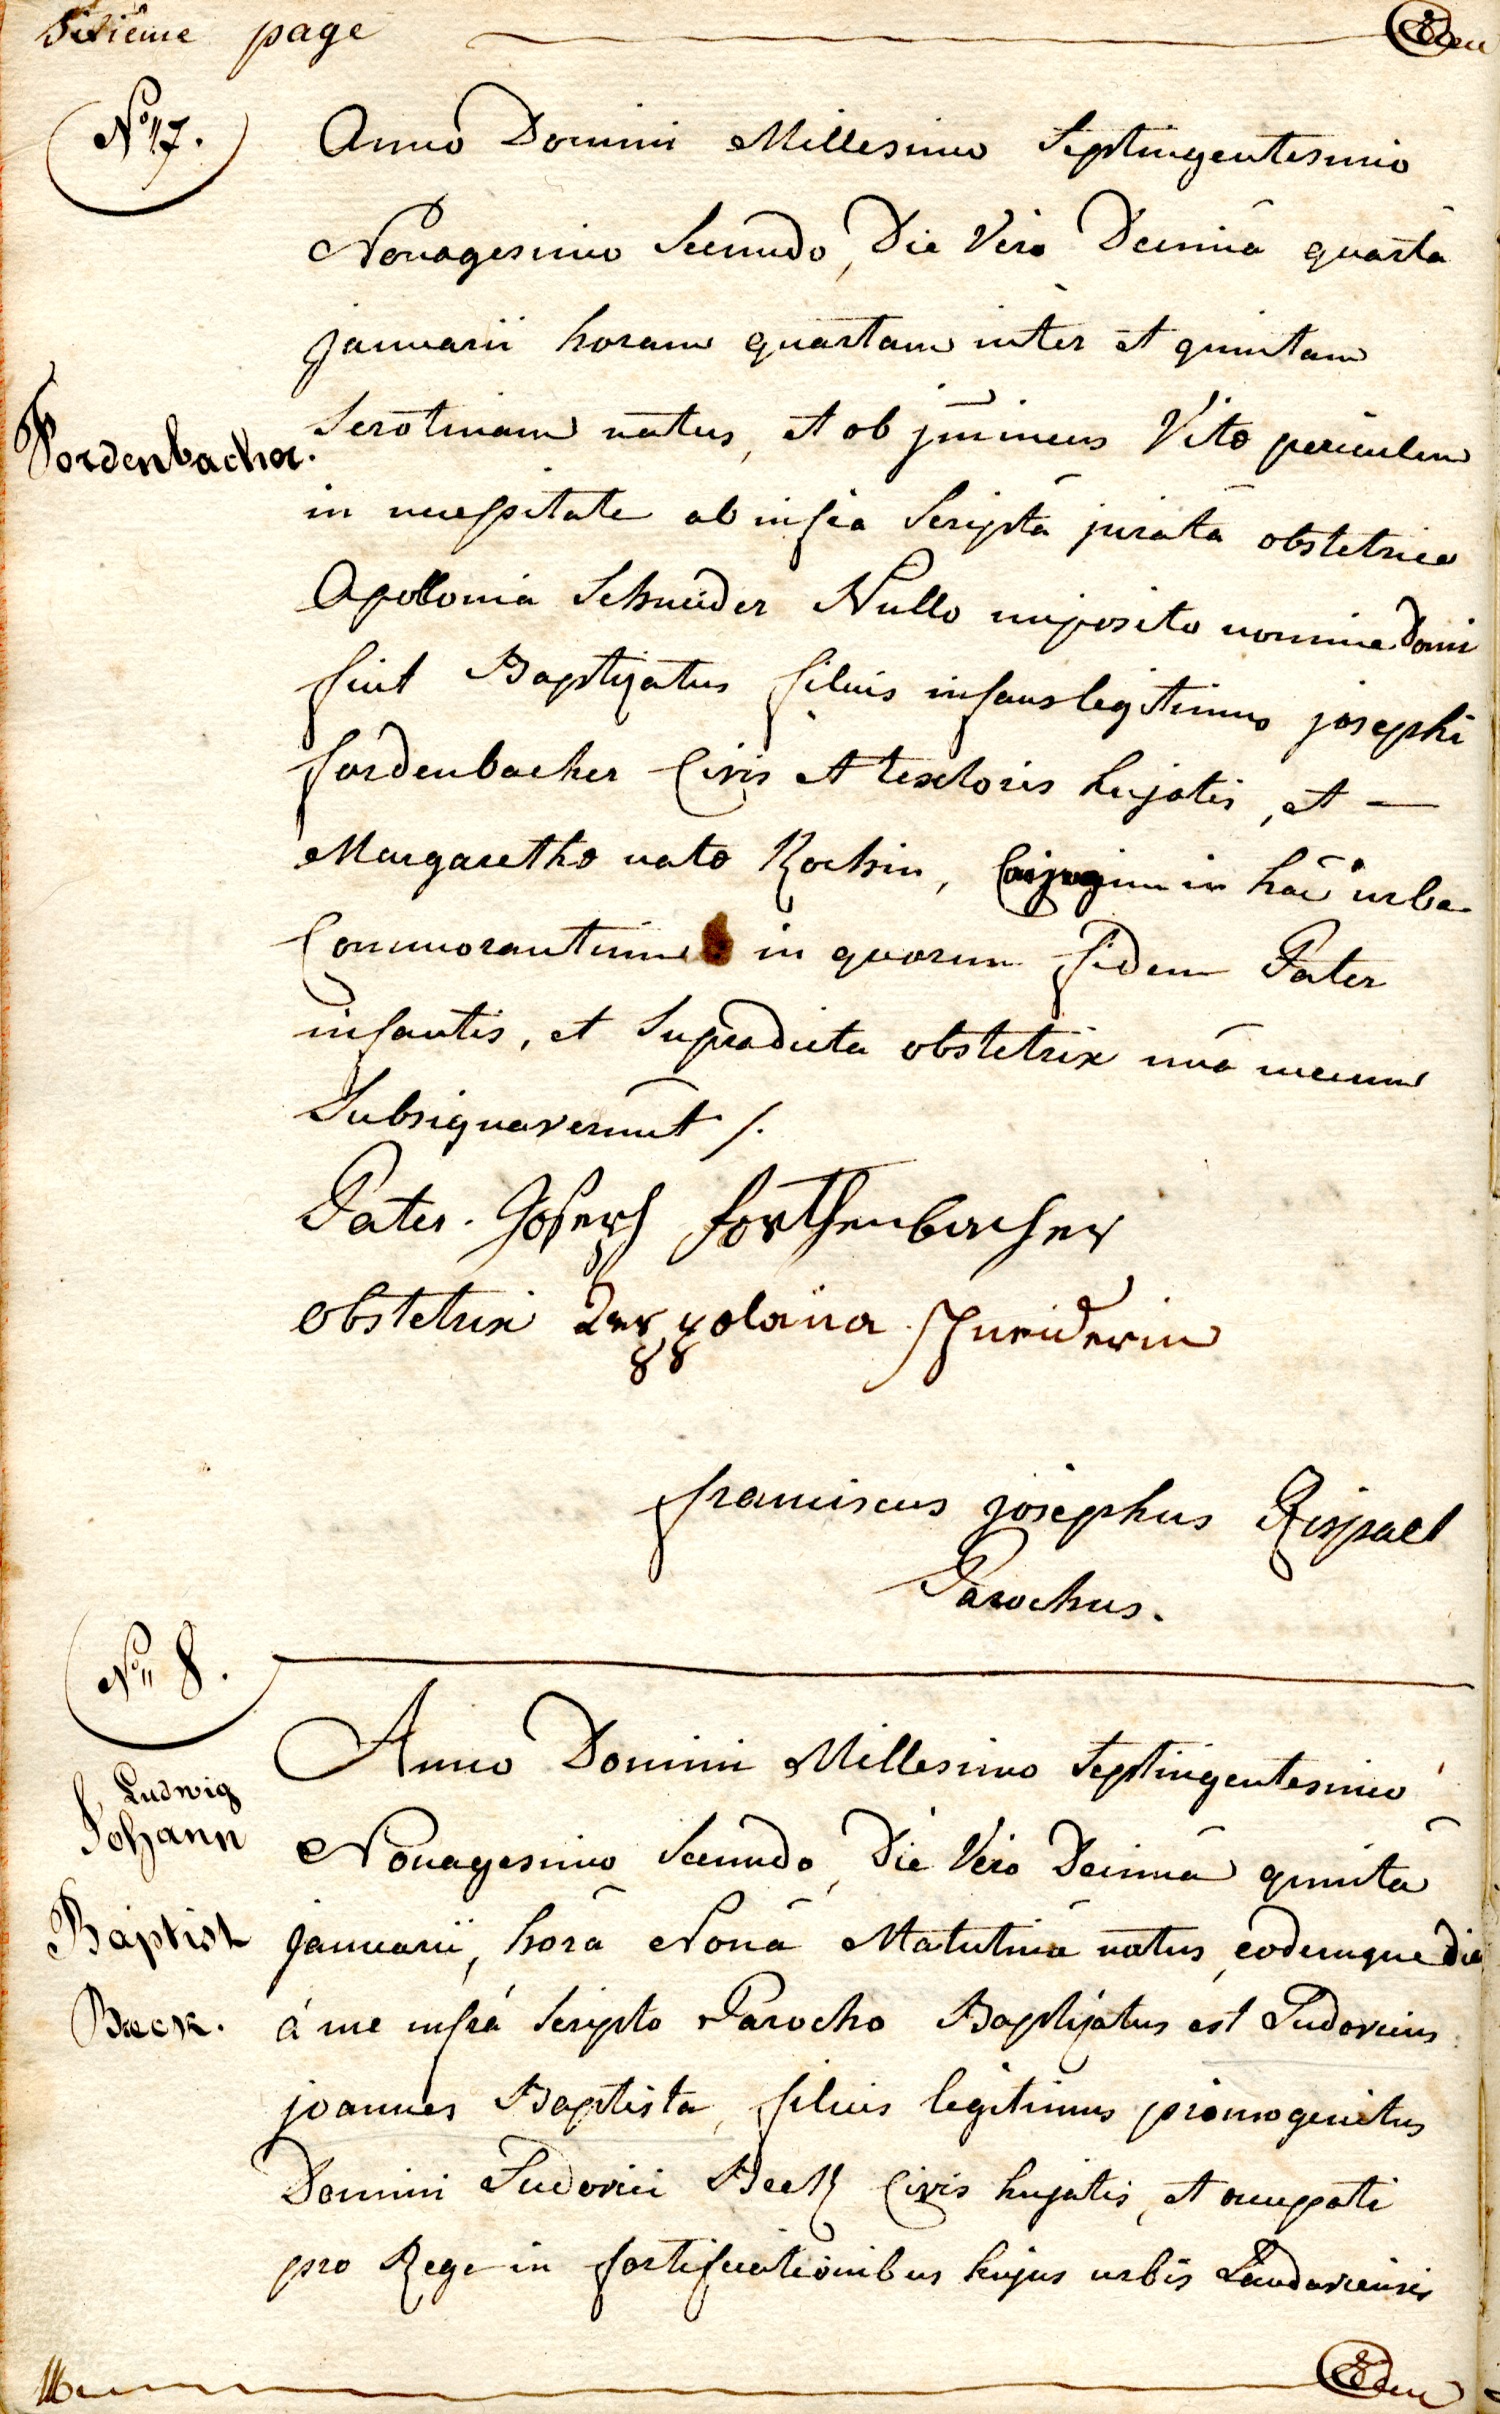 Sixième page
No 7.
Anno Domini Millesimo Septingentesimo
Nonagesimo Secundo, Die Vero Decimâ quartâ
januarii horam quartam inter et quintam
Fordenbacher.
Serotinam natus, et ob imminens Vitæ periculum
in necessitate ab infra Scriptâ juratâ obstetrice
Apollonia Schneider Nullo imposito nomine Domi
fuit Baptizatus filius infans legitimus josephi
fordenbacher Civis et textoris hujatis, et —
Margarethæ natæ Kochin, Conjugum in hac urbe
Commorantium in quorum fidem Pater
infantis, et Supradicta obstetrix unâ mecum
Subsignaverunt /.
Pater. Joseph forthenbacher
obstetrix appolania schneiderin
franciscus josephus
Parochus.
No 8.
Anno Domini Millesimo Septingentesimo
Ludwig
Johann
Nonagesimo Secundo, Die Vero Decimâ quintâ
Baptist
januarii, horâ Nonâ Matutinâ natus, eodemque die
Beck.
á me infrá Scripto Parocho Baptizatus est Ludovicus
joannes Baptista, filius legitimus primogenitus
Domini Ludovici Beck Civis hujatis, et occupati
pro Rege in fortificationibus hujus urbis Landaviensis